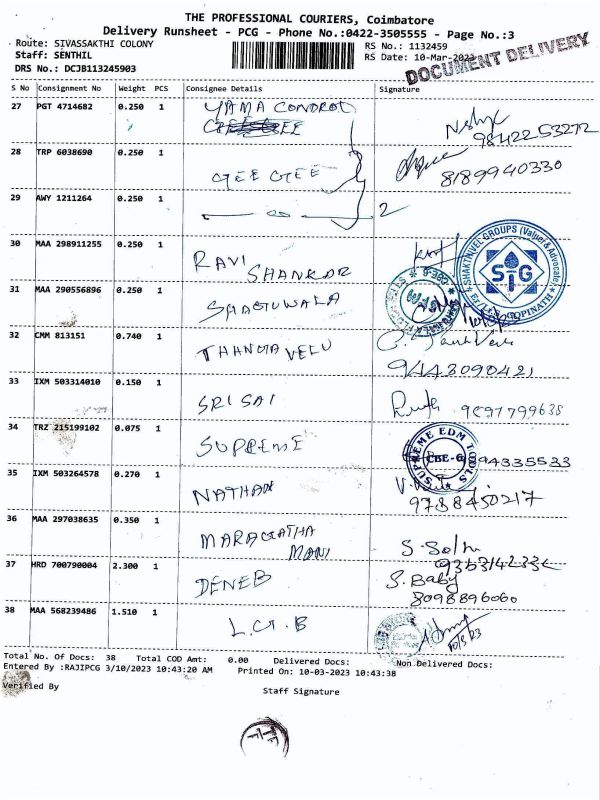 THE PROFESSIONAL COURIERS, Coimbatore
Delivery Runsheet - PCG - Phone No.:0422-3505555 - Page No.:3
Route: SIVASSAKTHI COLONY RS No.: 1132459
Staff: SENTHIL RS Date: 10-Mar-2023
DRS No.: DCJB113245903
DOCUMENT DELIVERY
S No Consignment No Weight PCS Consignee Details Signature
27 PGT 4714682 0.250 1 YAMA
28 TRP 6038690 0.250 1 GEE GEE 8189940330
29 AWY 1211264 0.250 1
30 MAA 298911255 0.250 1 RAVI SHANKAR
SHAKTHIVEL GROUPS (Valuer & Advocate)
STG
Er/LER.GOPINATH
31 MAA 290556896 0.250 1
32 CMM 813151 0.740 1 THANGAVELU 9443090421
33 IXM 503314010 0.150 1 SRI SAI
34 TRZ 215199102 0.075 1 SUPREME
SUPREME EDM TOOLS
CBE-6
35 IXM 503264578 0.270 1 NATHAN 9788450217
36 MAA 297038635 0.350 1 MARAGATHA MANI
37 HRD 700790004 2.300 1 DENEB S. Baby 8098896060
38 MAA 568239486 1.510 1 L.G.B 10/3/23
Total No. Of Docs: 38 Total COD Amt: 0.00 Delivered Docs: Non Delivered Docs:
Entered By :RAJIPCG 3/10/2023 10:43:20 AM Printed On: 10-03-2023 10:43:38
Verified By Staff Signature